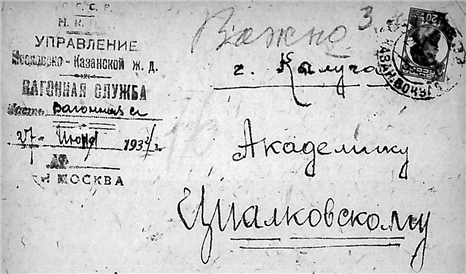 С.С.С.Р.
Н.К.
УПРАВЛЕНИЕ
Московско-Казанской ж. д.
ВАГОННАЯ СЛУЖБА
Часть Вагонная
27 193
МОСКВА
Важно 3
г. Калуга
Академику
Циалковскому